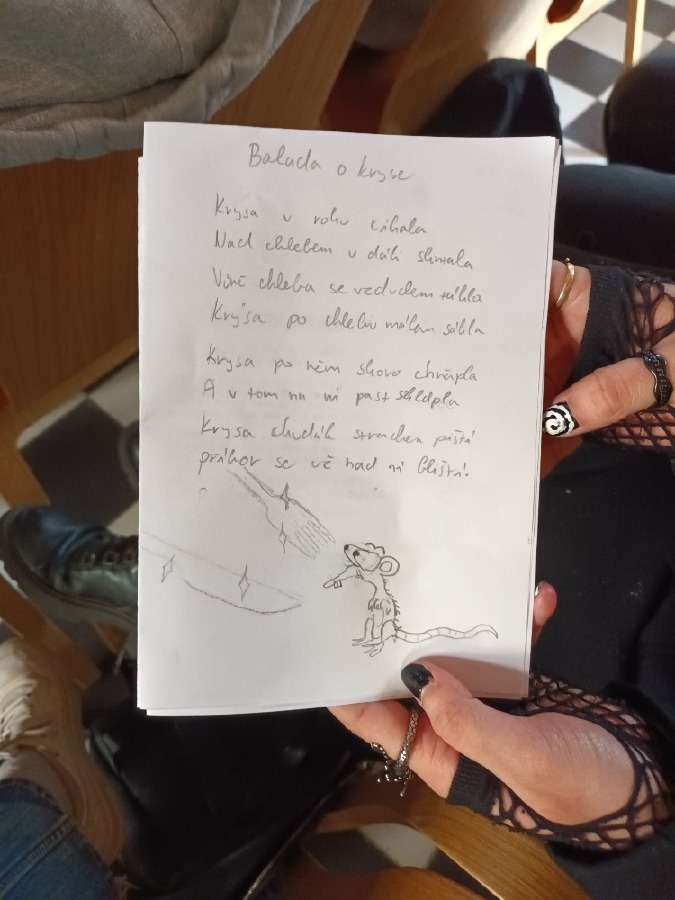 Balada o kryse
Krysa v rohu číhala
Nad chlebem v dáli slintala
Vůně chleba se vzduchem táhla
Krysa po chlebu málem sáhla
Krysa po něm skoro chňapla
A v tom na ni past sklapla
Krysa chudák strachem piští
příbor se už nad ní blýští!